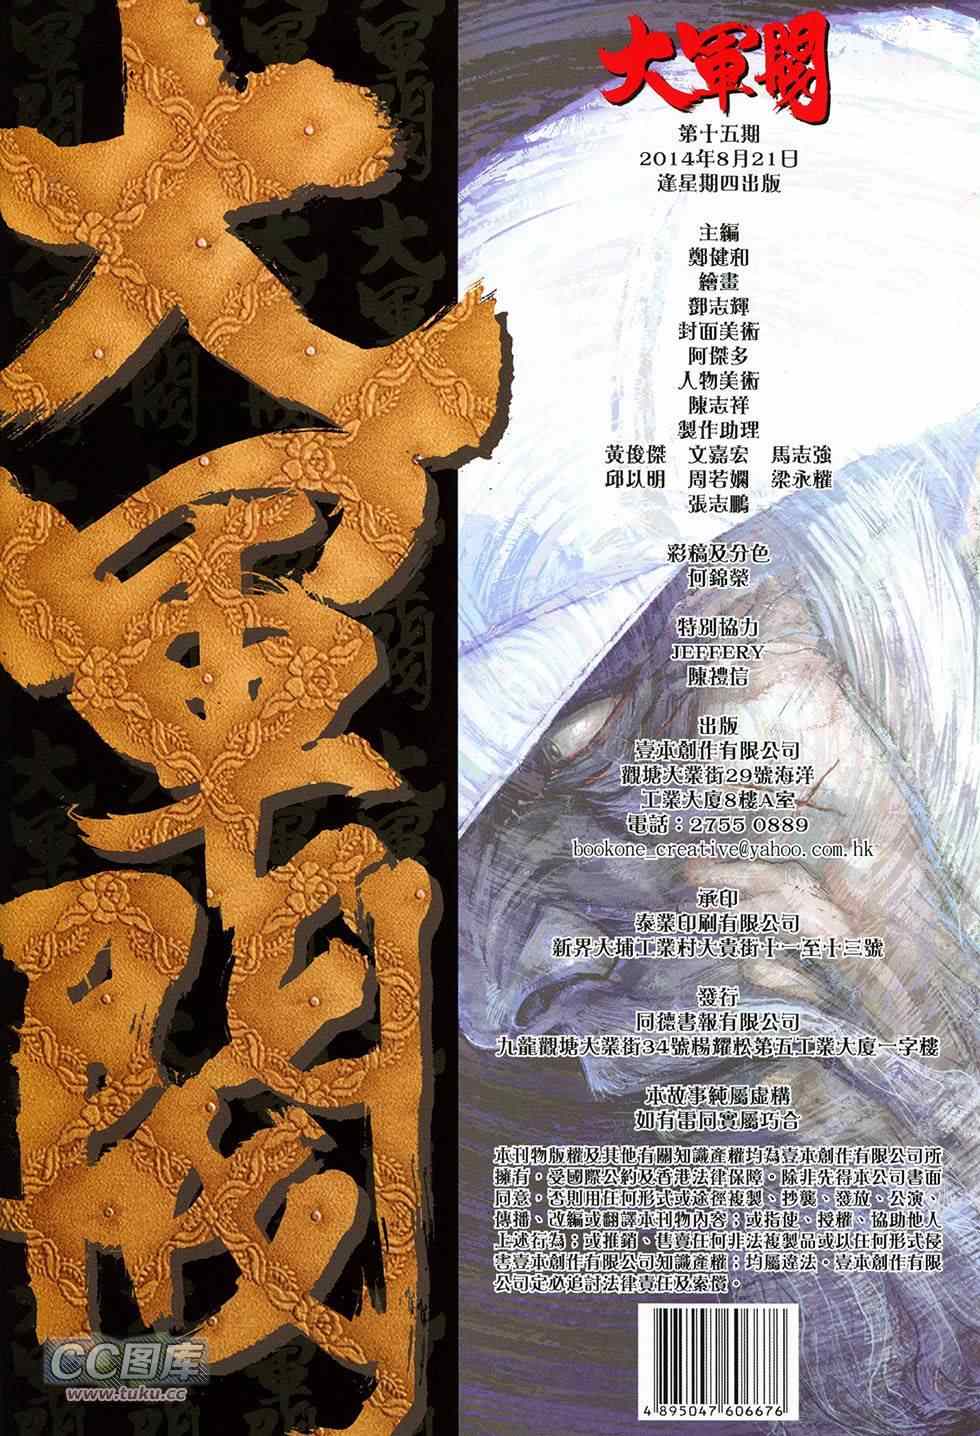 大軍閥
大軍閥
第十五期
2014年8月21日
逢星期四出版
主編
鄭健和
繪畫
鄧志輝
封面美術
阿傑多
人物美術
陳志祥
製作助理
黃俊傑 文嘉宏 馬志強
邱以明 周若嫻 梁永權
張志鵬
彩稿及分色
何錦榮
特別協力
JEFFERY
陳禮信
出版
壹本創作有限公司
觀塘大業街29號海洋
工業大廈8樓A室
電話：2755 0889
bookone_creative@yahoo.com.hk
承印
泰業印刷有限公司
新界大埔工業村大貴街十一至十三號
發行
同德書報有限公司
九龍觀塘大業街34號楊耀松第五工業大廈一字樓
本故事純屬虛構
如有雷同實屬巧合
本刊物版權及其他有關知識產權均為壹本創作有限公司所
擁有，受國際公約及香港法律保障。除非先得本公司書面
同意，否則用任何形式或途徑複製、抄襲、發放、公演、
傳播、改編或翻譯本刊物內容；或指使、授權、協助他人
上述行為；或推銷、售賣任何非法複製品或以任何形式侵
害壹本創作有限公司知識產權；均屬違法。壹本創作有限
公司定必追討法律責任及索償。
4 895047 606676
CC图库
www.tuku.cc